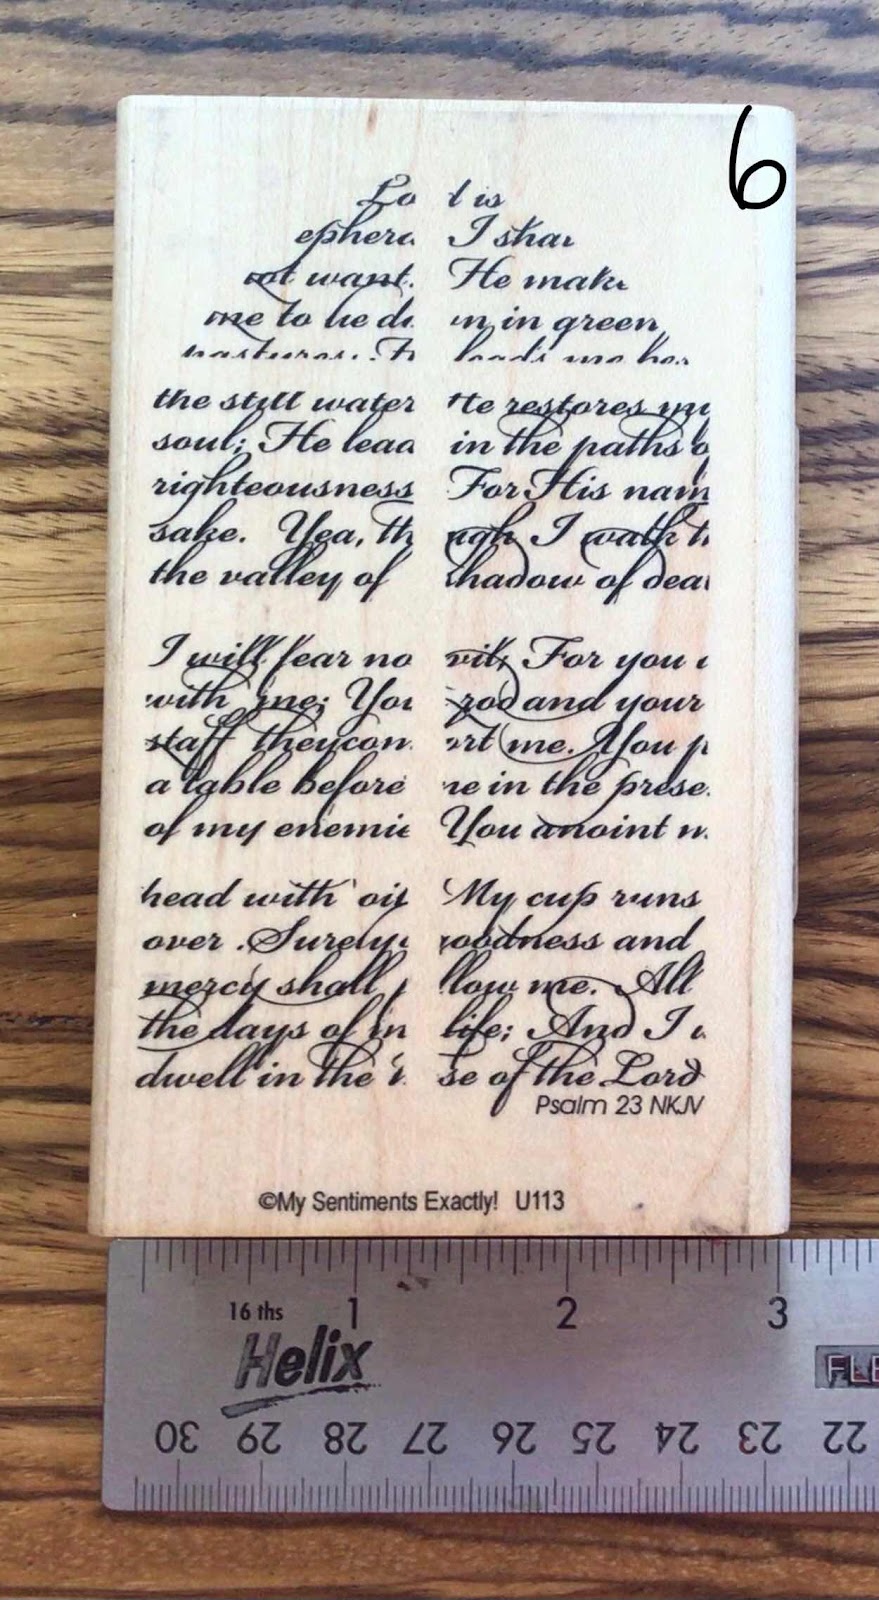 6
Lo d is
epherd I shal
not want. He make
me to lie do n in green
pastures. H leads me bes
the still water He restores my
soul; He lead in the paths o
righteousness For His nam
sake. Yea, th ugh I walk t
the valley of shadow of deat
I will fear no vil; For you a
with me; You rod and your
staff they com ort me. You p
a table before me in the prese
of my enemie You anoint m
head with oil My cup runs
over. Surely goodness and
mercy shall f llow me. All
the days of m life; And I w
dwell in the h se of the Lord
Psalm 23 NKJV
©My Sentiments Exactly! U113
16 ths 1 2 3
Helix
FLE
30 29 28 27 26 25 24 23 22